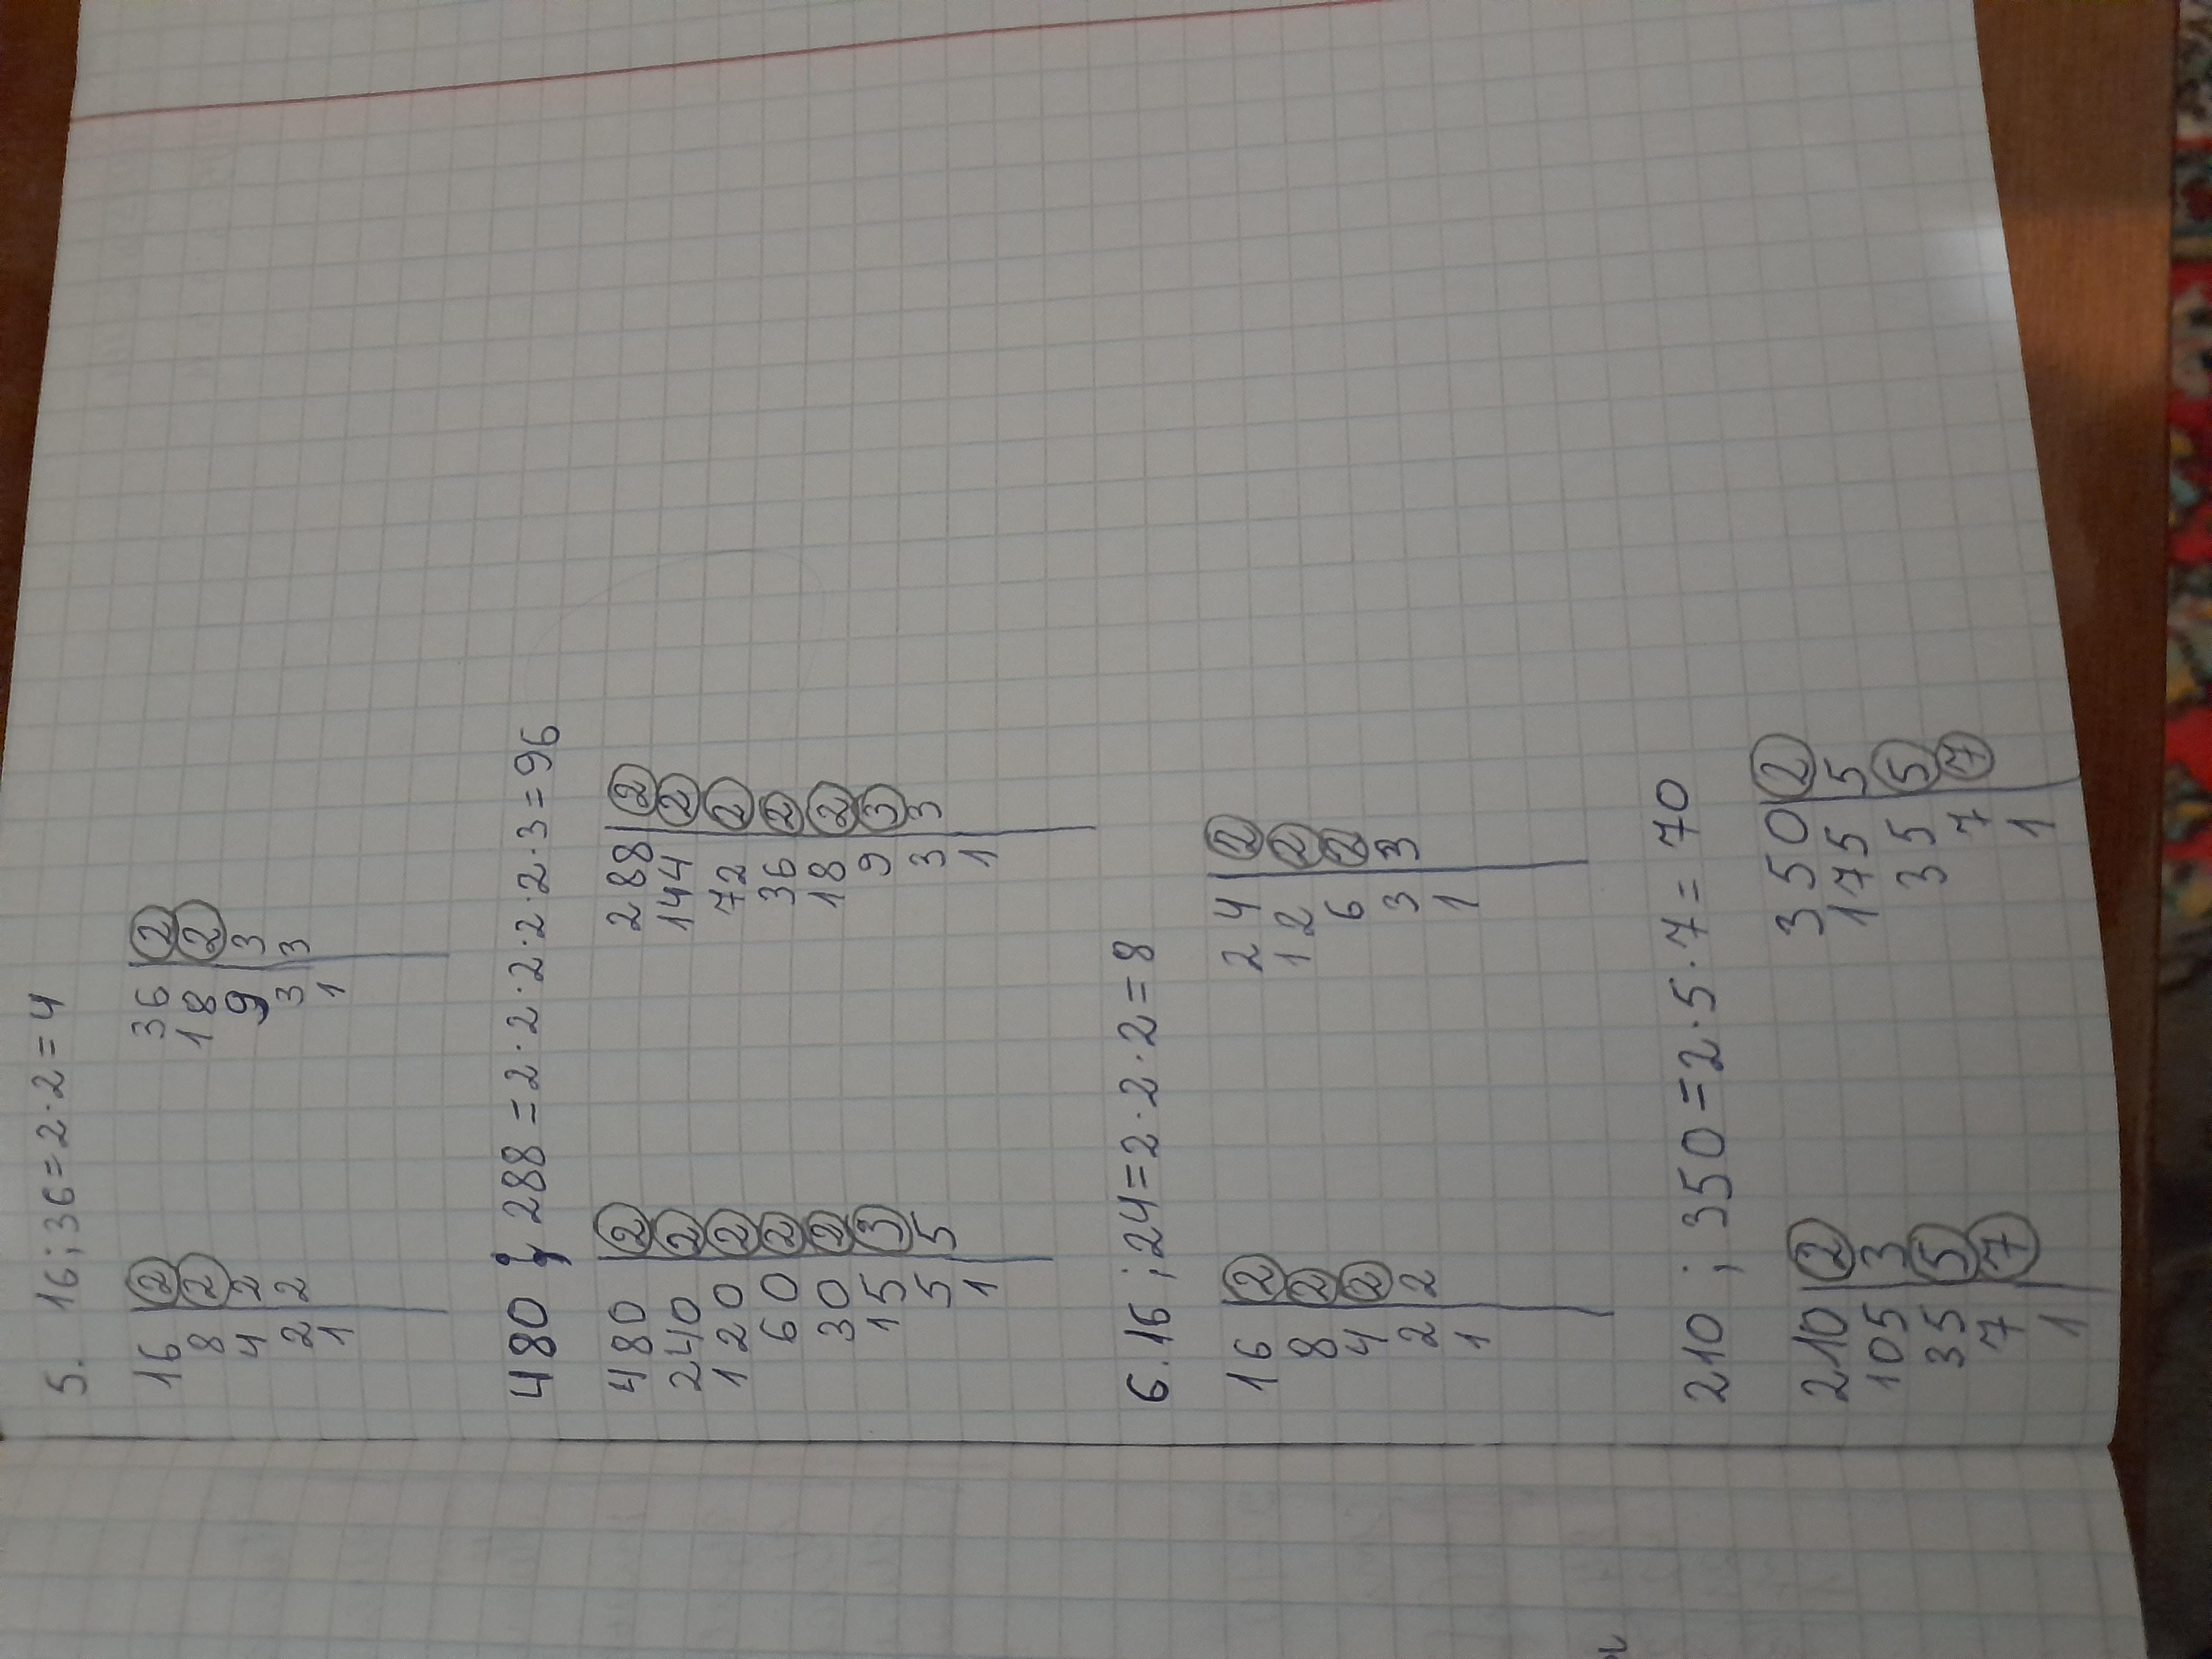 5. 16 ; 36 = 2 · 2 = 4
16 | 2 36 | 2
8 | 2 18 | 2
4 | 2 9 | 3
2 | 2 3 | 3
1 | 1 |
480 ; 288 = 2 · 2 · 2 · 2 · 2 · 3 = 96
480 | 2 288 | 2
240 | 2 144 | 2
120 | 2 72 | 2
60 | 2 36 | 2
30 | 2 18 | 2
15 | 3 9 | 3
5 | 5 3 | 3
1 | 1 |
6. 16 ; 24 = 2 · 2 · 2 = 8
16 | 2 24 | 2
8 | 2 12 | 2
4 | 2 6 | 2
2 | 2 3 | 3
1 | 1 |
210 ; 350 = 2 · 5 · 7 = 70
210 | 2 350 | 2
105 | 3 175 | 5
35 | 5 35 | 5
7 | 7 7 | 7
1 | 1 |